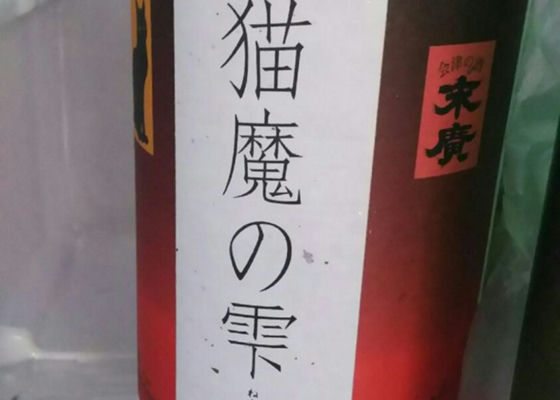 猫魔の雫
ね
会津の酒
末廣